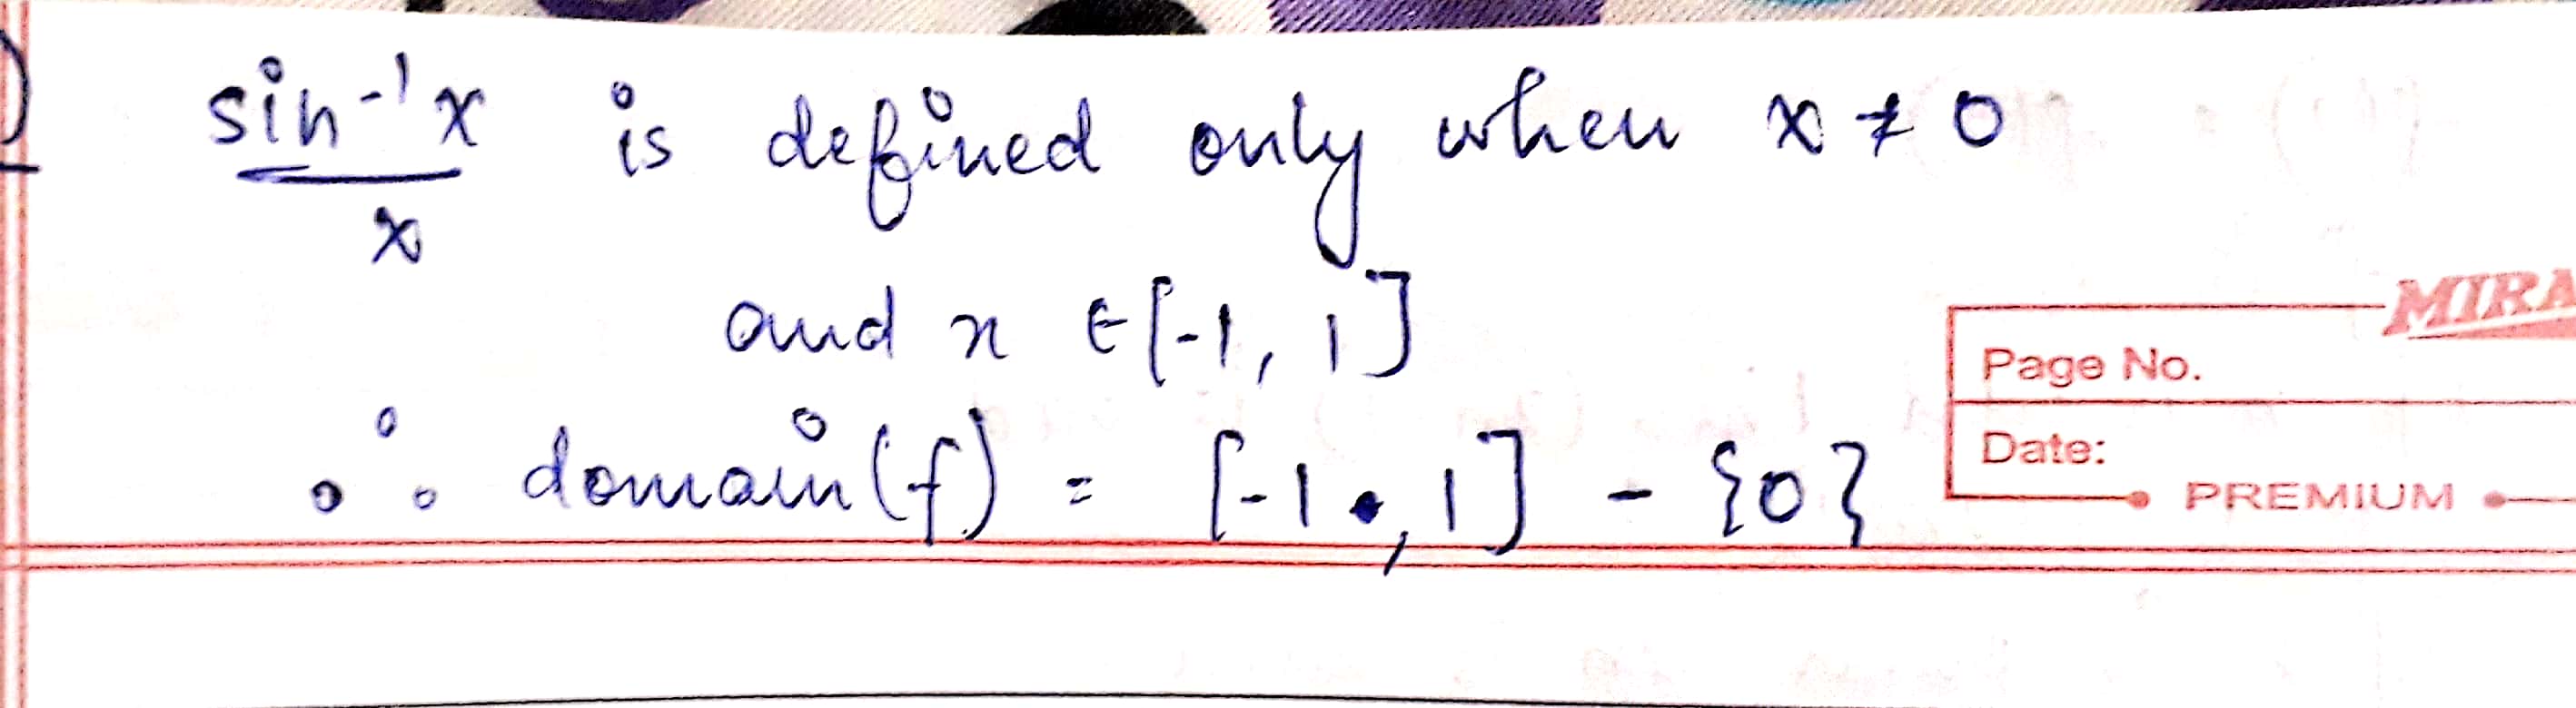 sin⁻¹x / x is defined only when x ≠ 0
and x ∈ [-1, 1]
∴ domain(f) = [-1, 1] - {0}
MIRA
Page No.
Date:
PREMIUM